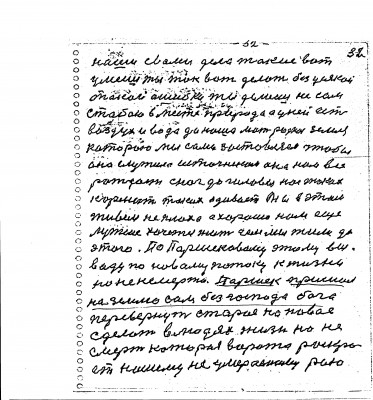 - 32 -
32
наши с вами дела такие вот
умеш ты так вот делат без уякой
такой ошибки ты дыши не сам
с табою вместе природа а у ней ест
воздух и вода да наша мат родная земля
которою мы сами заставляем чтобы
она служила источником она нам все
рождает с ног до головы нас таких
кормит таких одивает Мы и в этом
живем не плохо а хорошо нам еще
лутше хочется жит чем мы жили до
этого. По Паршековому этому вы-
воду по новому потоку к жизни
но не к смерте. Паршек пришел
на землю сам без господа бога
перевернут старое на новое
сделат в людях жизнь но не
смерт которая ворота раскры
ет нашему не умераемому раю